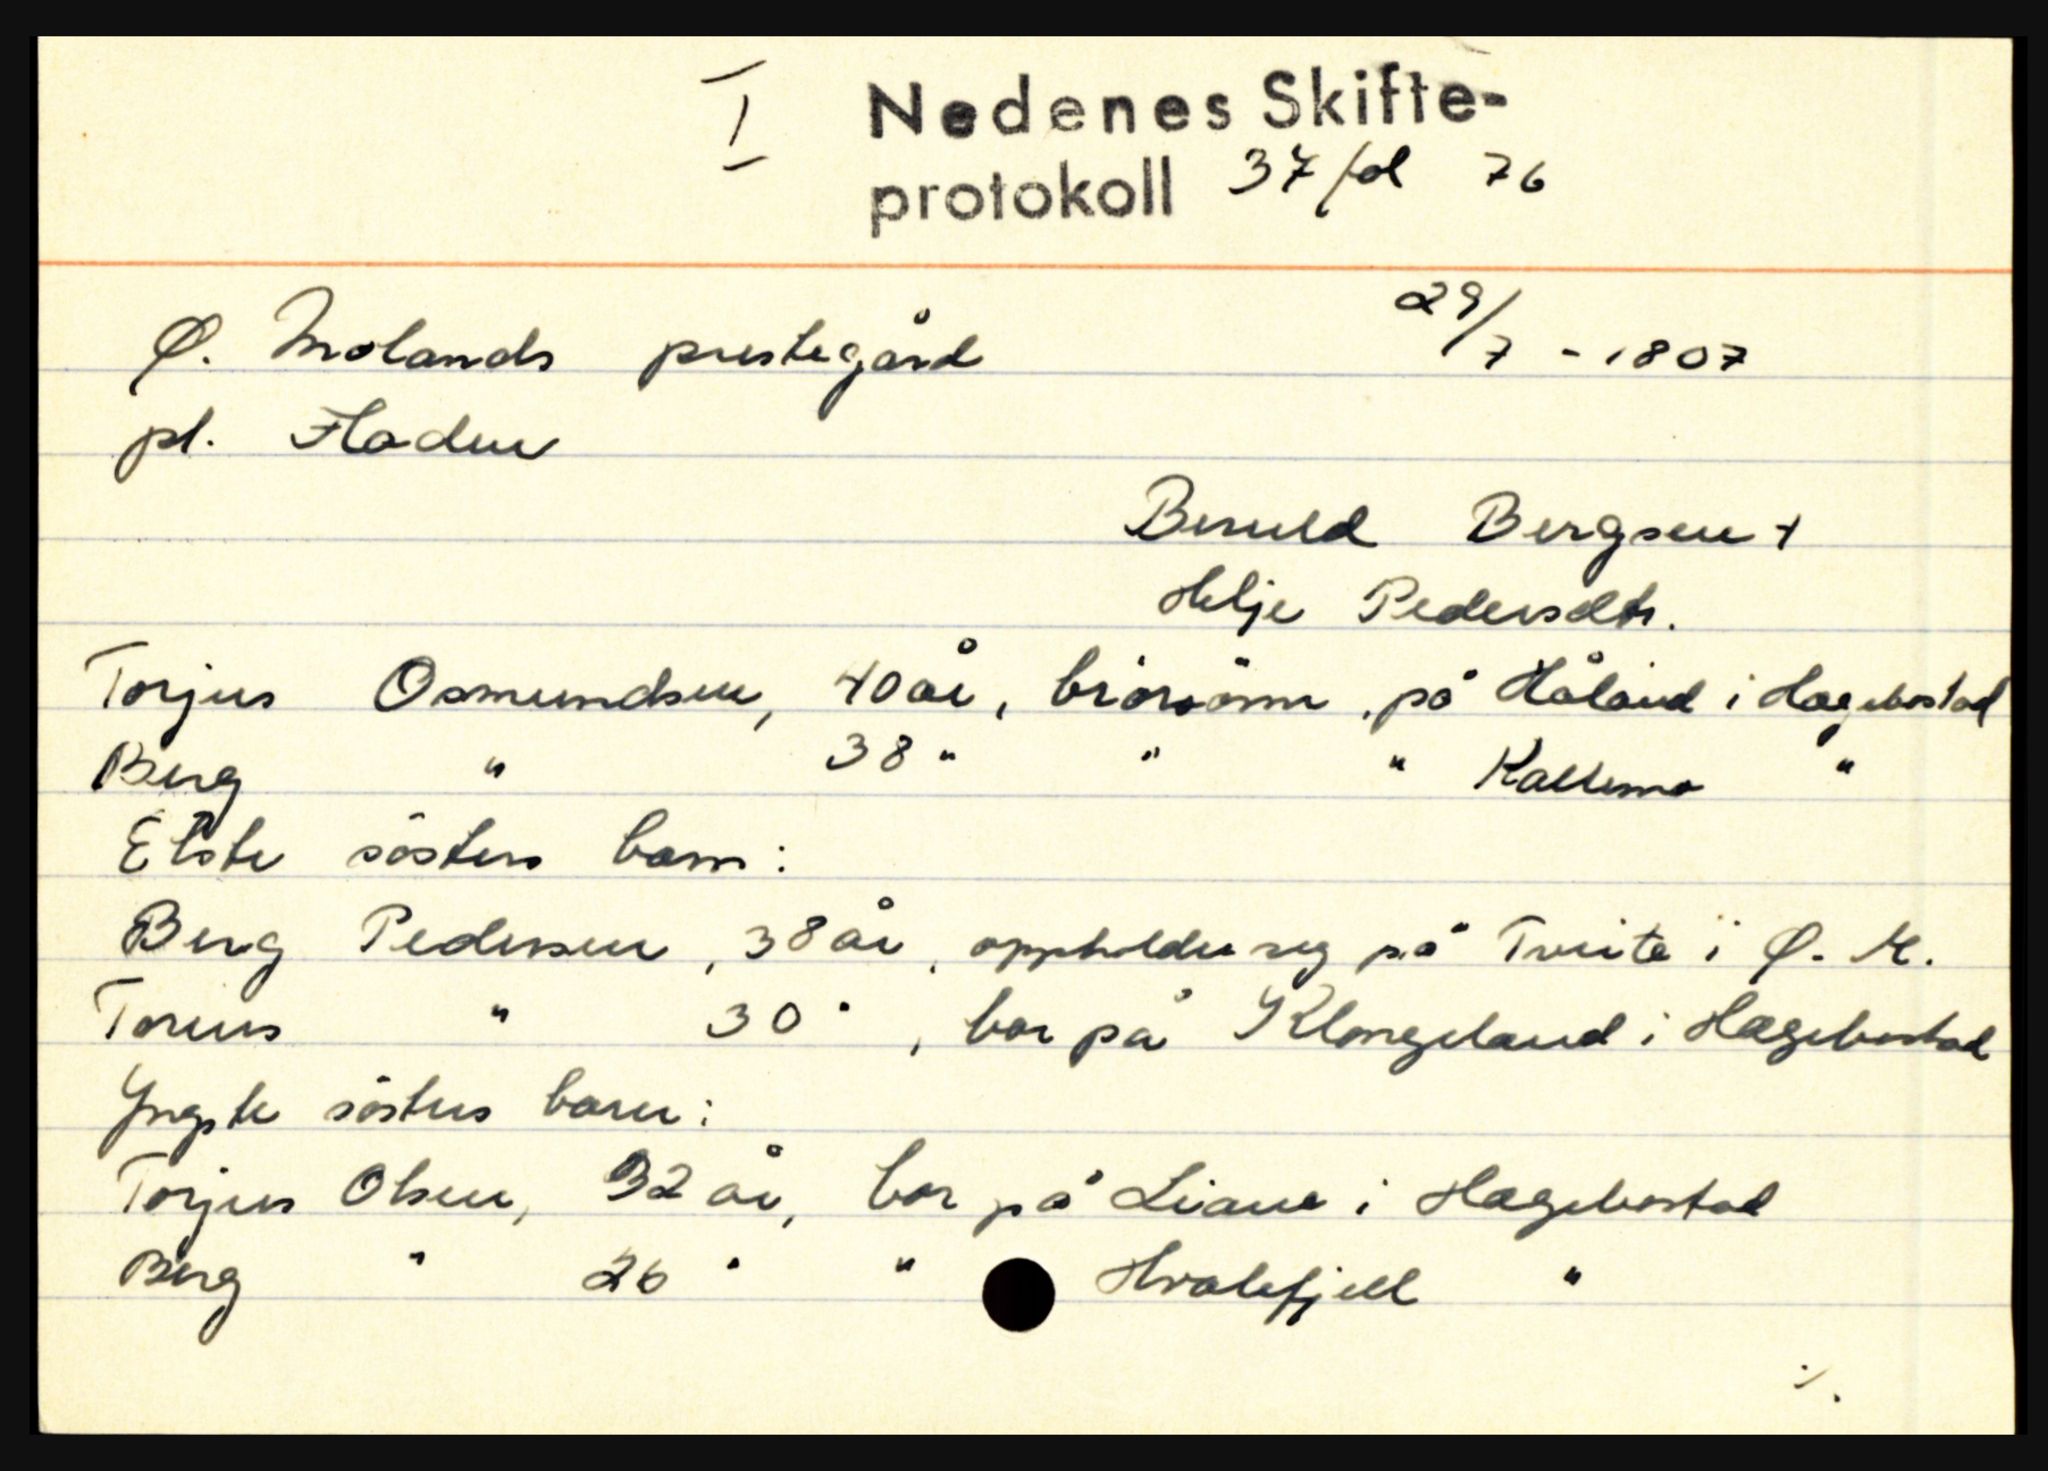 I Nedenes Skifte-
protokoll 37 fol 76
Ø. Molands prestegård 29/7 - 1807
pl. Fladen
Beruld Bergsen +
Helje Pedersdtr.
Torjus Osmundsen, 40 år, brorsønn, på Håland i Hægebostad
Berg " 38 " " " Kallemo "
Elste søsters barn:
Berg Pedersen, 38 år, oppholder seg på Tveite i Ø. M.
Torius " 30 ", bor på Klongeland i Hægebostad
Yngste søsters barn:
Torjus Olsen, 32 år, bor på Liane i Hægebostad
Berg " 26 " " Hvalefjell "
./.